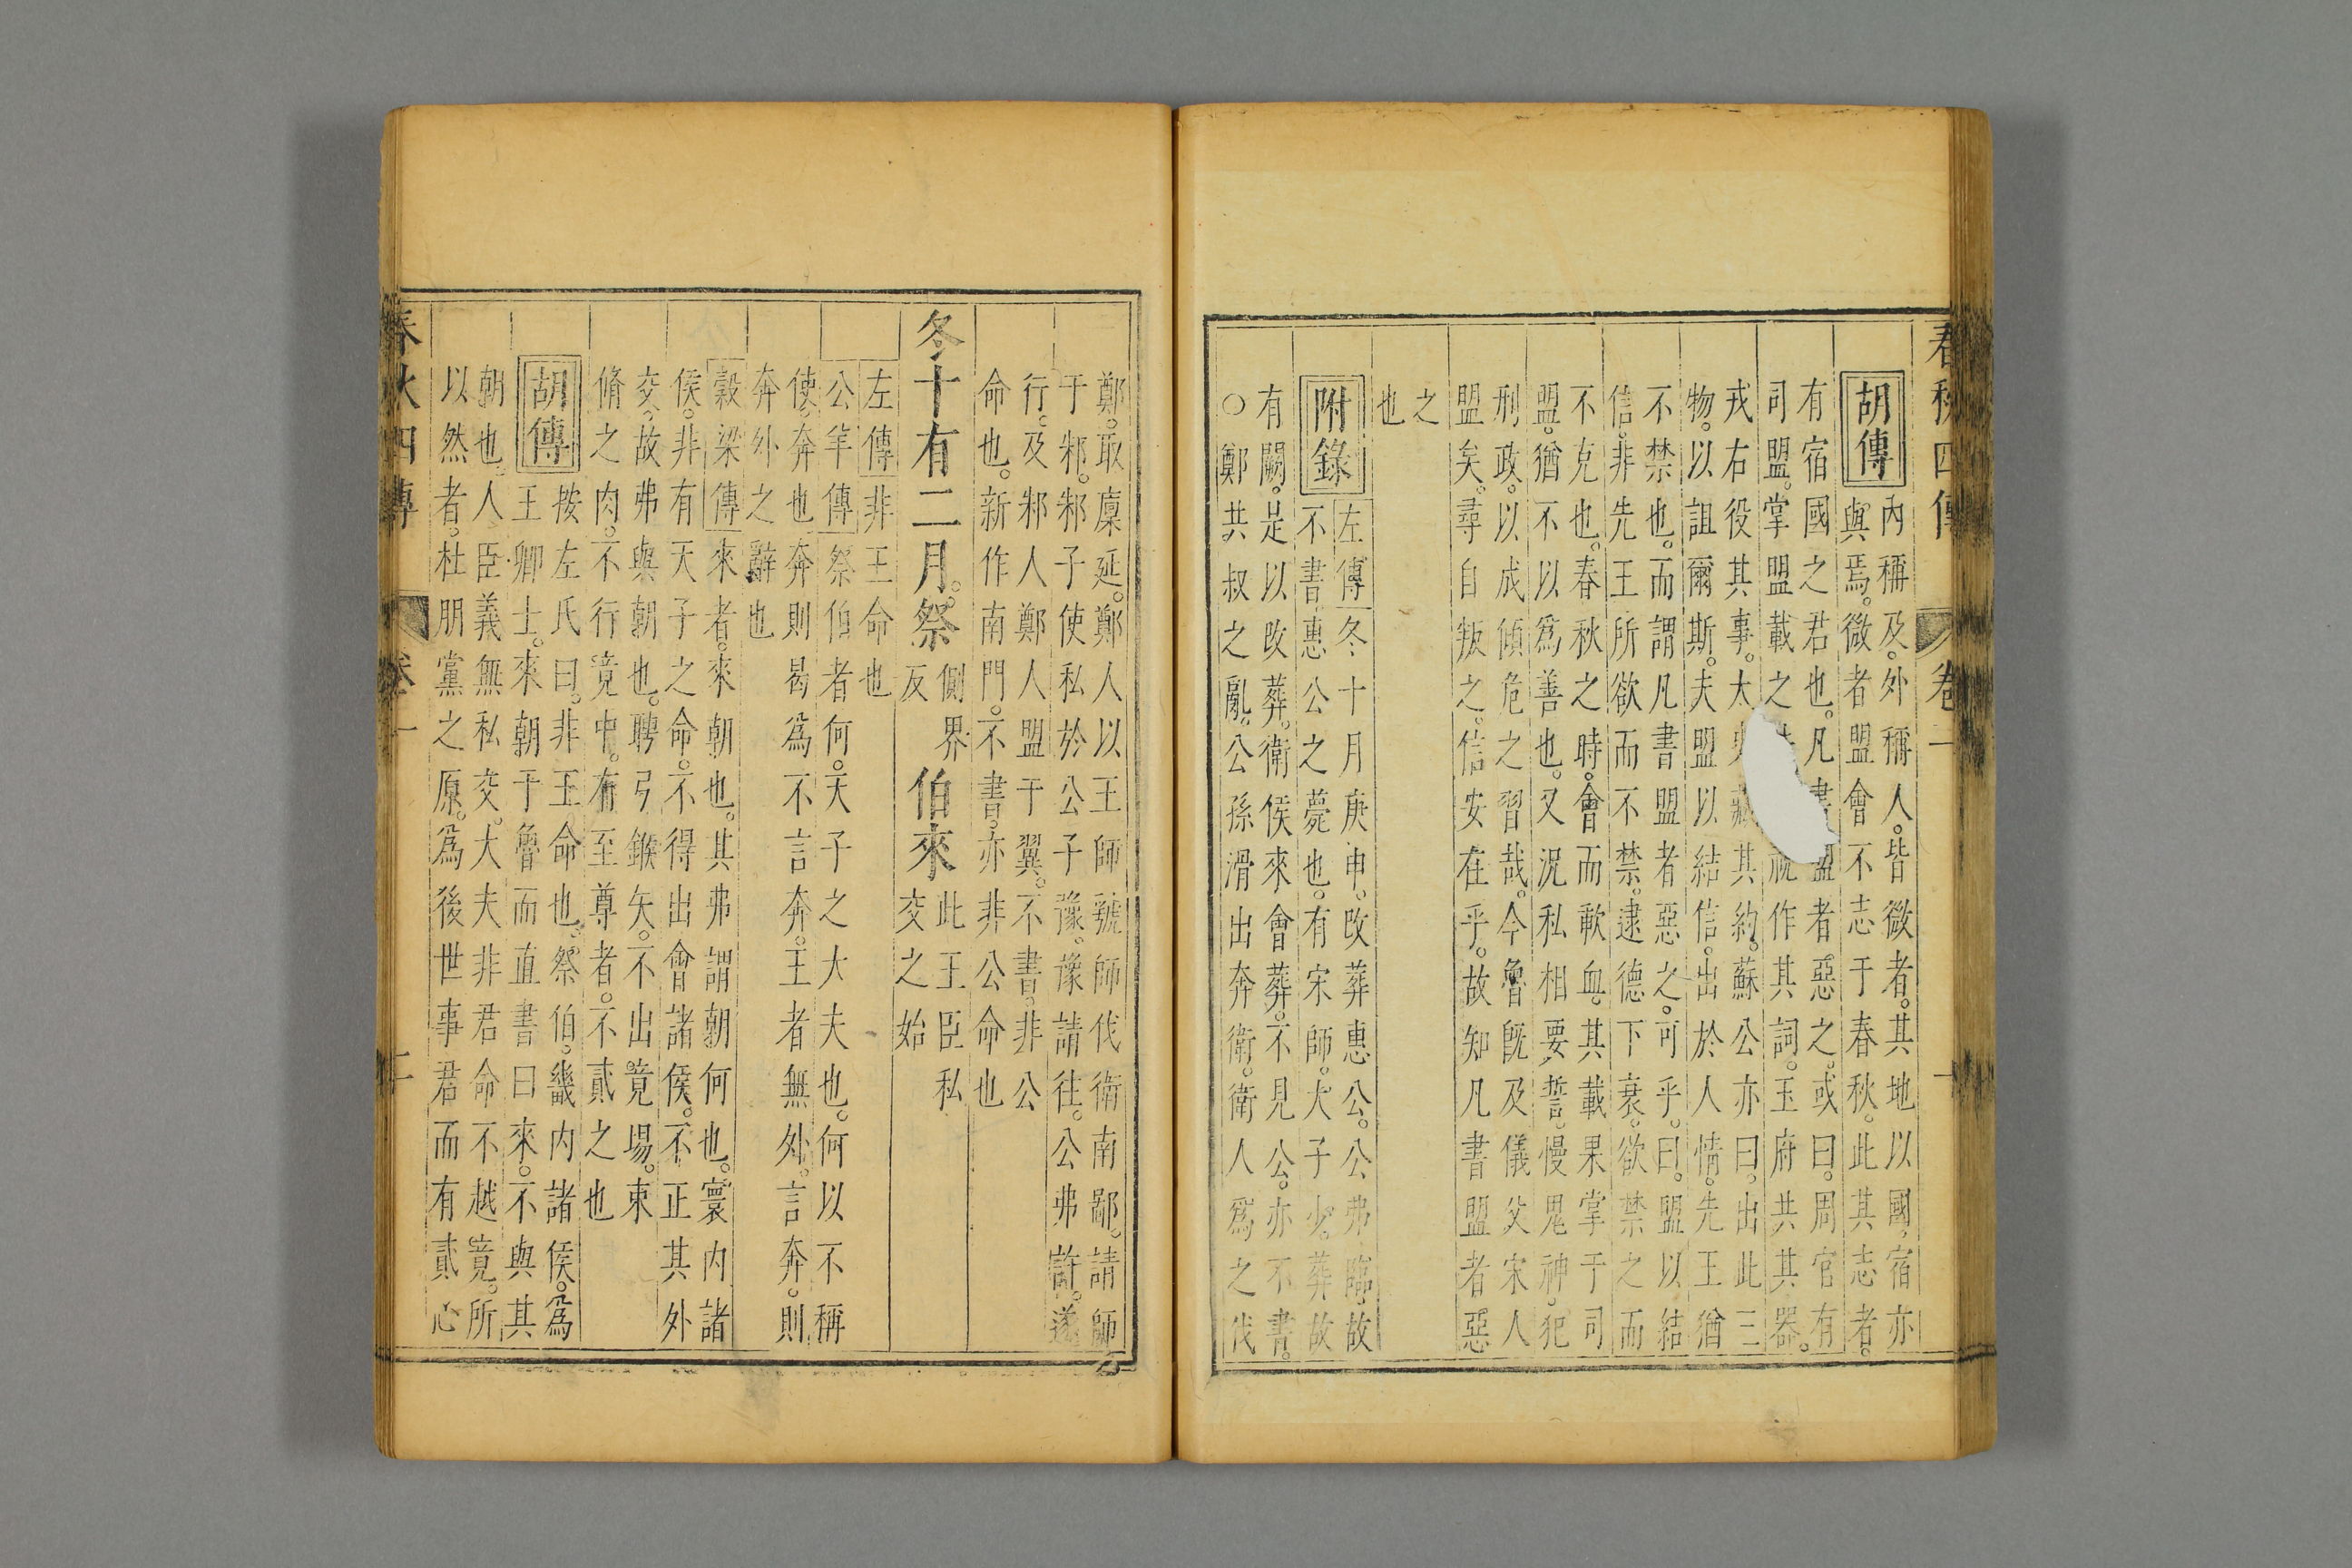 春秋四傳 卷一
胡傳
內稱及。外稱人。皆微者。其地以國，宿亦
與焉。微者盟會不志于春秋。此其志者。
有宿國之君也。凡書盟者惡之。或曰。周官有
司盟。掌盟載之 祝作其詞。玉府共其器。
戎右役其事。太史藏其約。蘇公亦曰。出此三
物。以詛爾斯。夫盟以結信。出於人情。先王猶
不禁也。而謂凡書盟者惡之。可乎。曰。盟以結
信。非先王所欲而不禁。逮德下衰。欲禁之而
不克也。春秋之時。會而歃血。其載果掌于司
盟。猶不以爲善也。又況私相要誓。慢鬼神。犯
刑政。以成傾危之習哉。今魯旣及儀父宋人
盟矣。尋自叛之。信安在乎。故知凡書盟者惡
之
也
附錄
左傳冬十月庚申。改葬惠公。公弗臨。故
不書惠公之薨也。有宋師。大子少。葬故
有闕。是以改葬。衛侯來會葬。不見公。亦不書。
○鄭共叔之亂。公孫滑出奔衛。衛人爲之伐
鄭。取廩延。鄭人以王師虢師伐衛南鄙。請師
于邾。邾子使私於公子豫。豫請往。公弗許。遂
行。及邾人鄭人盟于翼。不書。非公
命也。新作南門。不書。亦非公命也
冬十有二月。祭側界反伯來此王臣私交之始
左傳非王命也
公羊傳祭伯者何。天子之大夫也。何以不稱
使。奔也奔則曷爲不言奔。王者無外。言奔。則
奔外之辭也
穀梁傳來者。來朝也。其弗謂朝何也。寰內諸
侯。非有天子之命。不得出會諸侯。不正其外
交。故弗與朝也。聘弓鍭矢。不出竟場。束
脩之肉。不行竟中。有至尊者。不貳之也
胡傳
按左氏曰。非王命也。祭伯。畿內諸侯。爲
王卿士。來朝于魯而直書曰來。不與其
朝也。人臣義無私交。大夫非君命不越竟。所
以然者。杜朋黨之原。爲後世事君而有貳心
春秋四傳 卷一 十